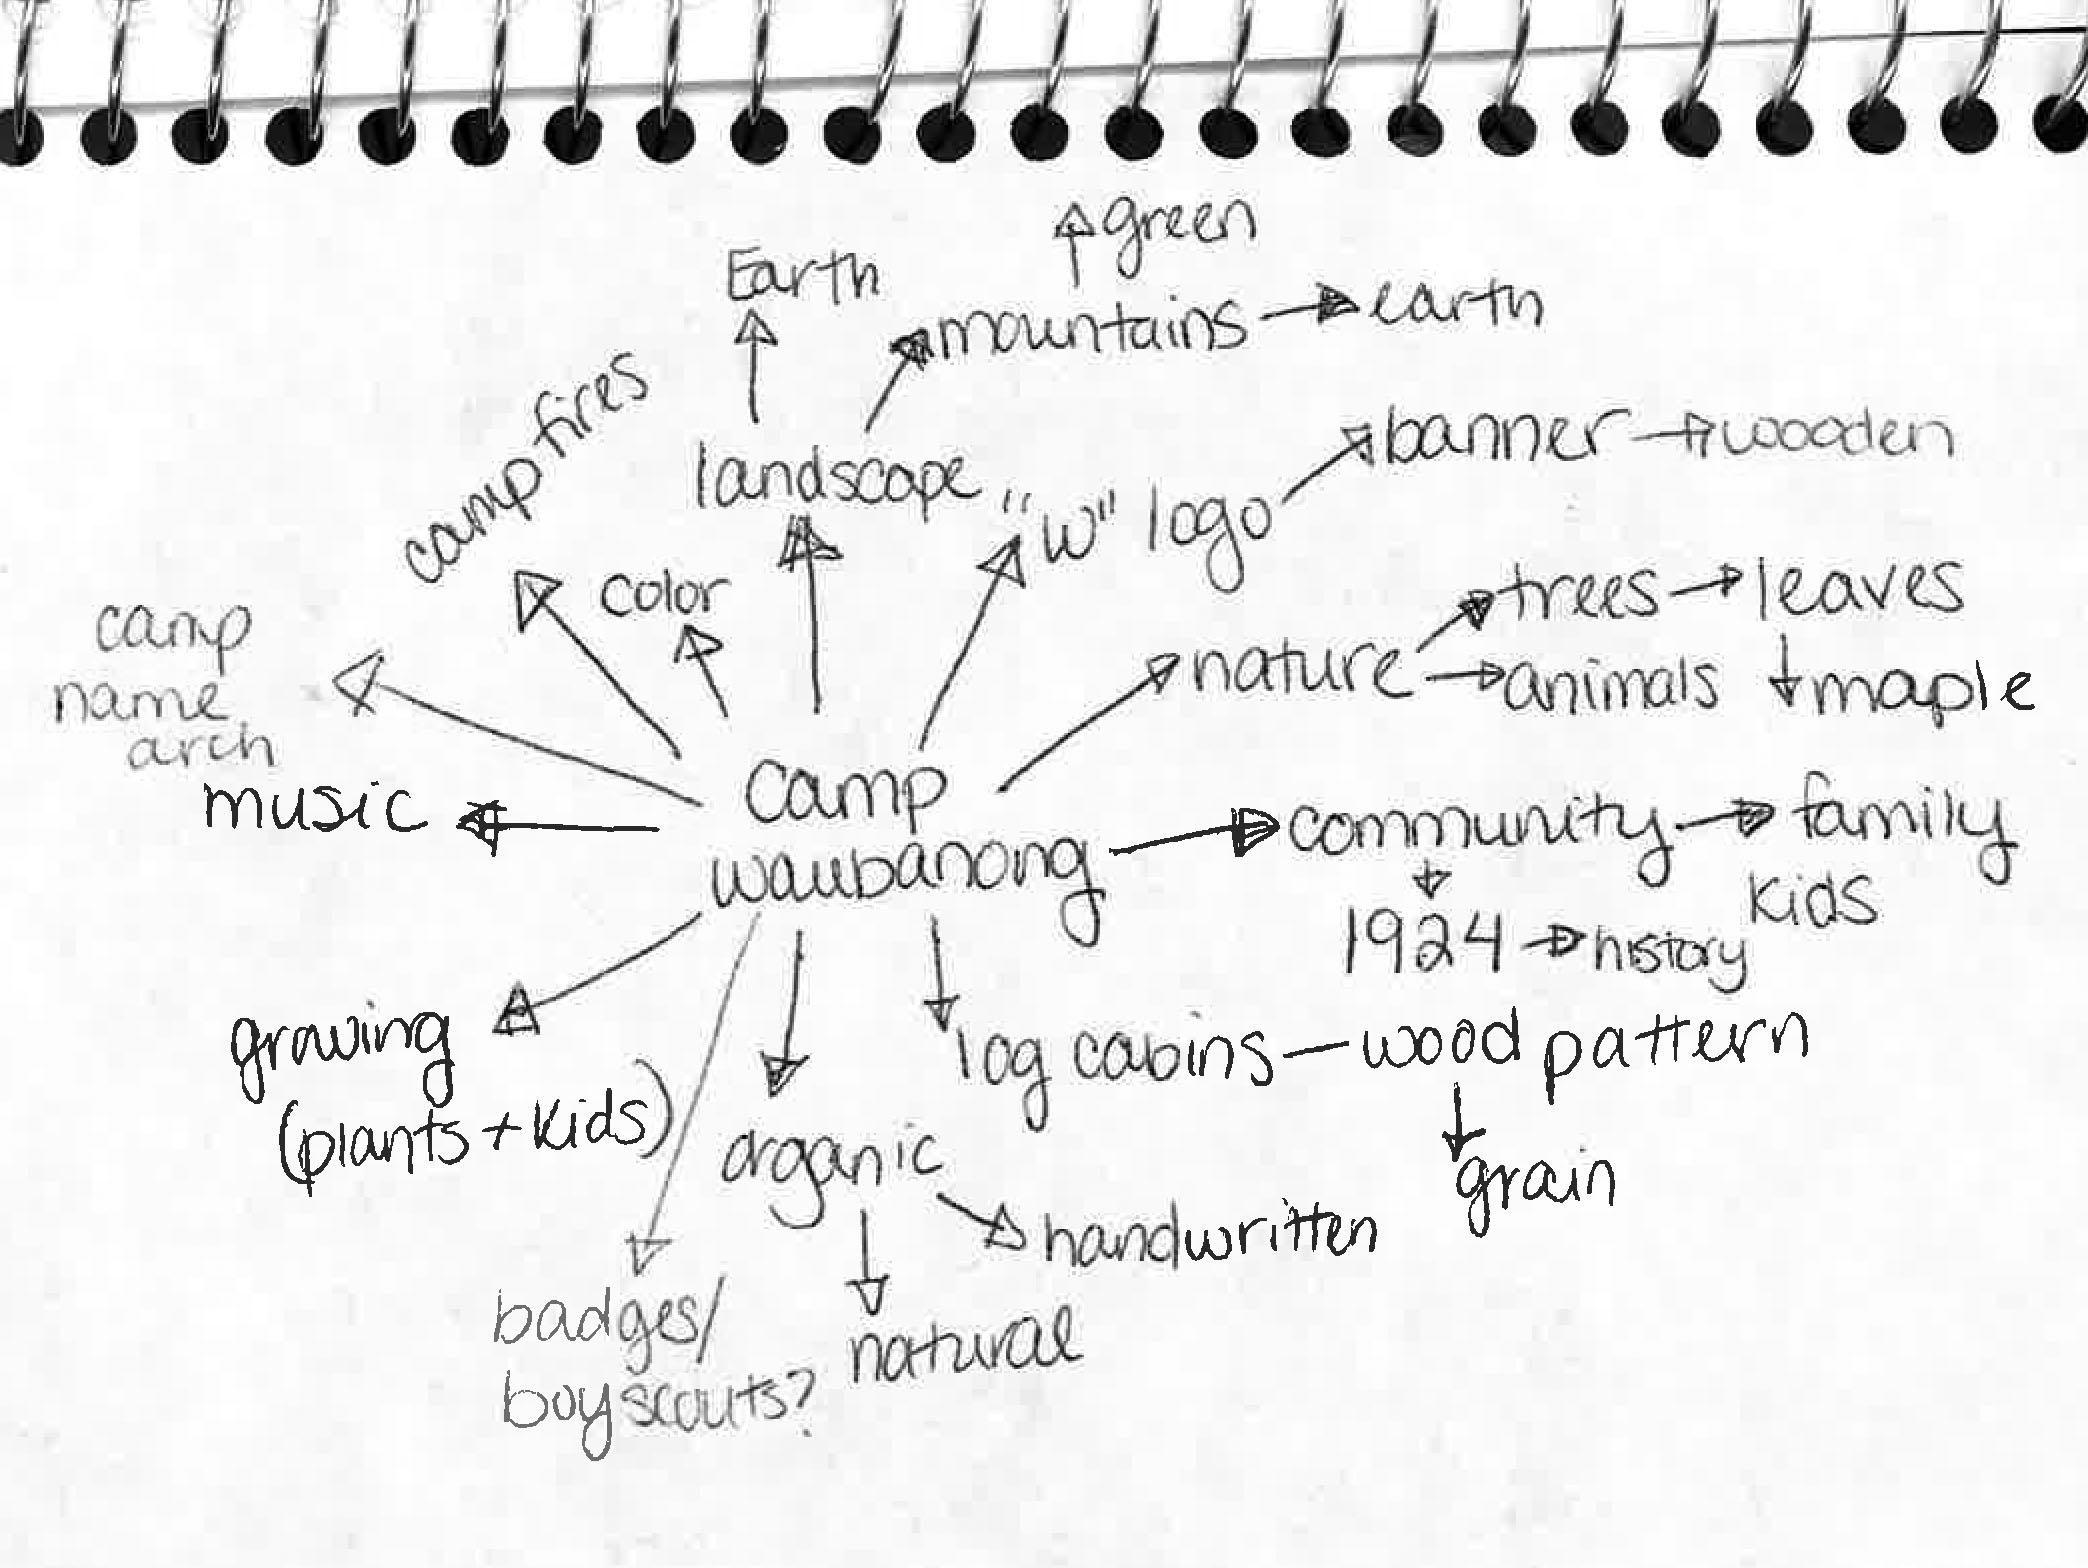 green
Earth
mountains
earth
camp fires
landscape
"W" logo
banner
wooden
color
nature
trees
leaves
animals
maple
camp
name
arch
music
camp
waubanong
community
family
kids
1924
history
growing
(plants + kids)
log cabins
wood pattern
grain
organic
handwritten
natural
badges/
boyscouts?